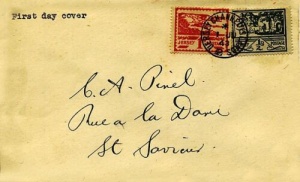 First day cover
JERSEY
C. A. Pinel.
Rue a la Dame
St Saviour.